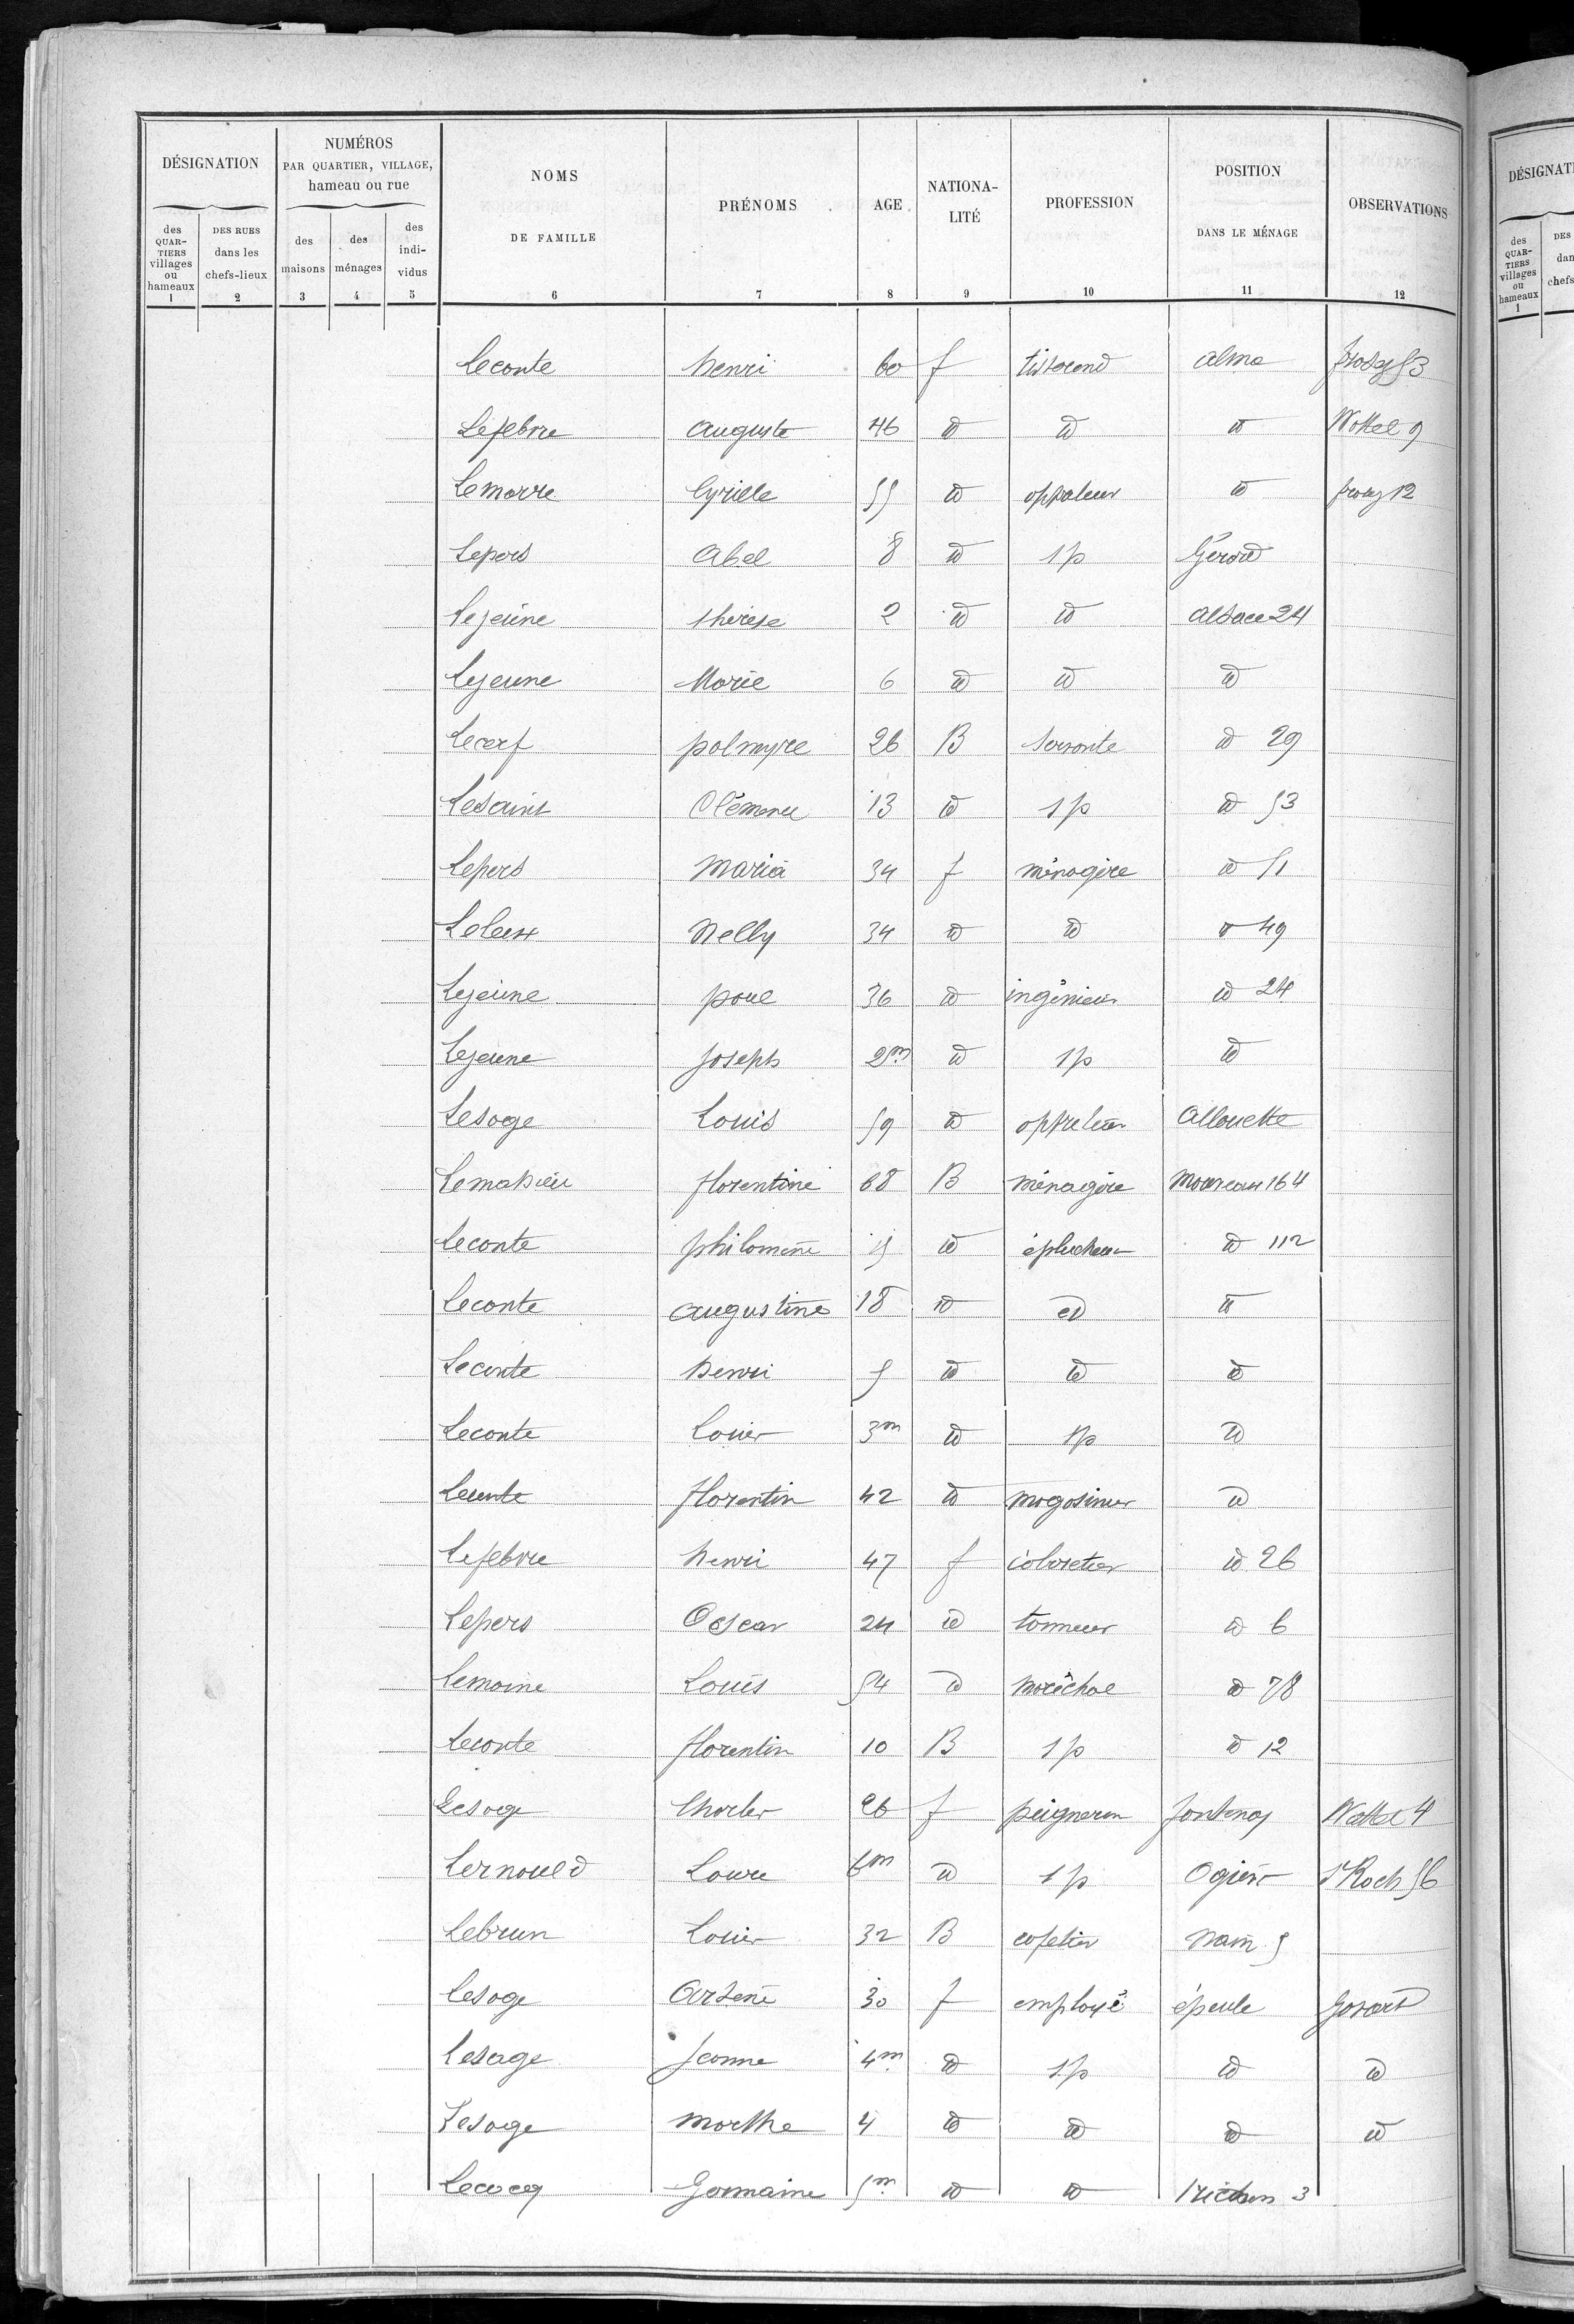 DÉSIGNATION NUMÉROS PAR QUARTIER, VILLAGE, hameau ou rue NOMS DE FAMILLE PRÉNOMS AGE NATIONA-LITÉ PROFESSION POSITION DANS LE MÉNAGE OBSERVATIONS
des QUAR-TIERS villages ou hameaux DES RUES dans les chefs-lieux des maisons des ménages des indi-vidus
1 2 3 4 5 6 7 8 9 10 11 12
Leconte henri 60 f tisserand alma 53
Lefebvre auguste 46 id id id Wattel 9
Lemarre Cyrille 55 id id 12
Lepers Abel 8 id sp Gérard
Lejeune thérèse 2 id id alsace 24
Lejeune Marie 6 id id id
Lecerf palmyre 26 B servante id 29
Lesaint Clémence 13 id sp id 53
Lepers Maria 34 f ménagère id 51
Leleux Nelly 34 id id id 49
Lejeune paul 36 id ingénieur id 24
Lejeune Joseph 2m id sp id
Lesage Louis 59 id appreteur Allouette
Lemahieu florentine 68 B ménagère Mouveaux 164
Leconte philomène 15 id éplucheur id 112
Leconte augustine 18 id id id
Leconte henri 5 id id id
Leconte Louis 3m id sp id
Leconte florentin 42 id magasinier id
Lefebvre henri 47 f cabaretier id 26
Lepers Oscar 24 id tonneur id 6
Lemoine Louis 54 id maréchal id 78
Leconte florentin 10 B sp id 12
Lesage Charles 26 f peigneron fontenoy Wattel 4
Lernould Laure 6m id sp Ogier St Roch 56
Lebrun Louis 32 B cafetier Nain 5
Lesage Arsène 30 f employé épeule
Lesage Jeanne 4m id sp id id
Lesage marthe 4 id id id id
Lecocq Germaine 5m id id 3
DÉSIGNATI
des QUAR-TIERS villages ou hameaux DES dan chefs
1